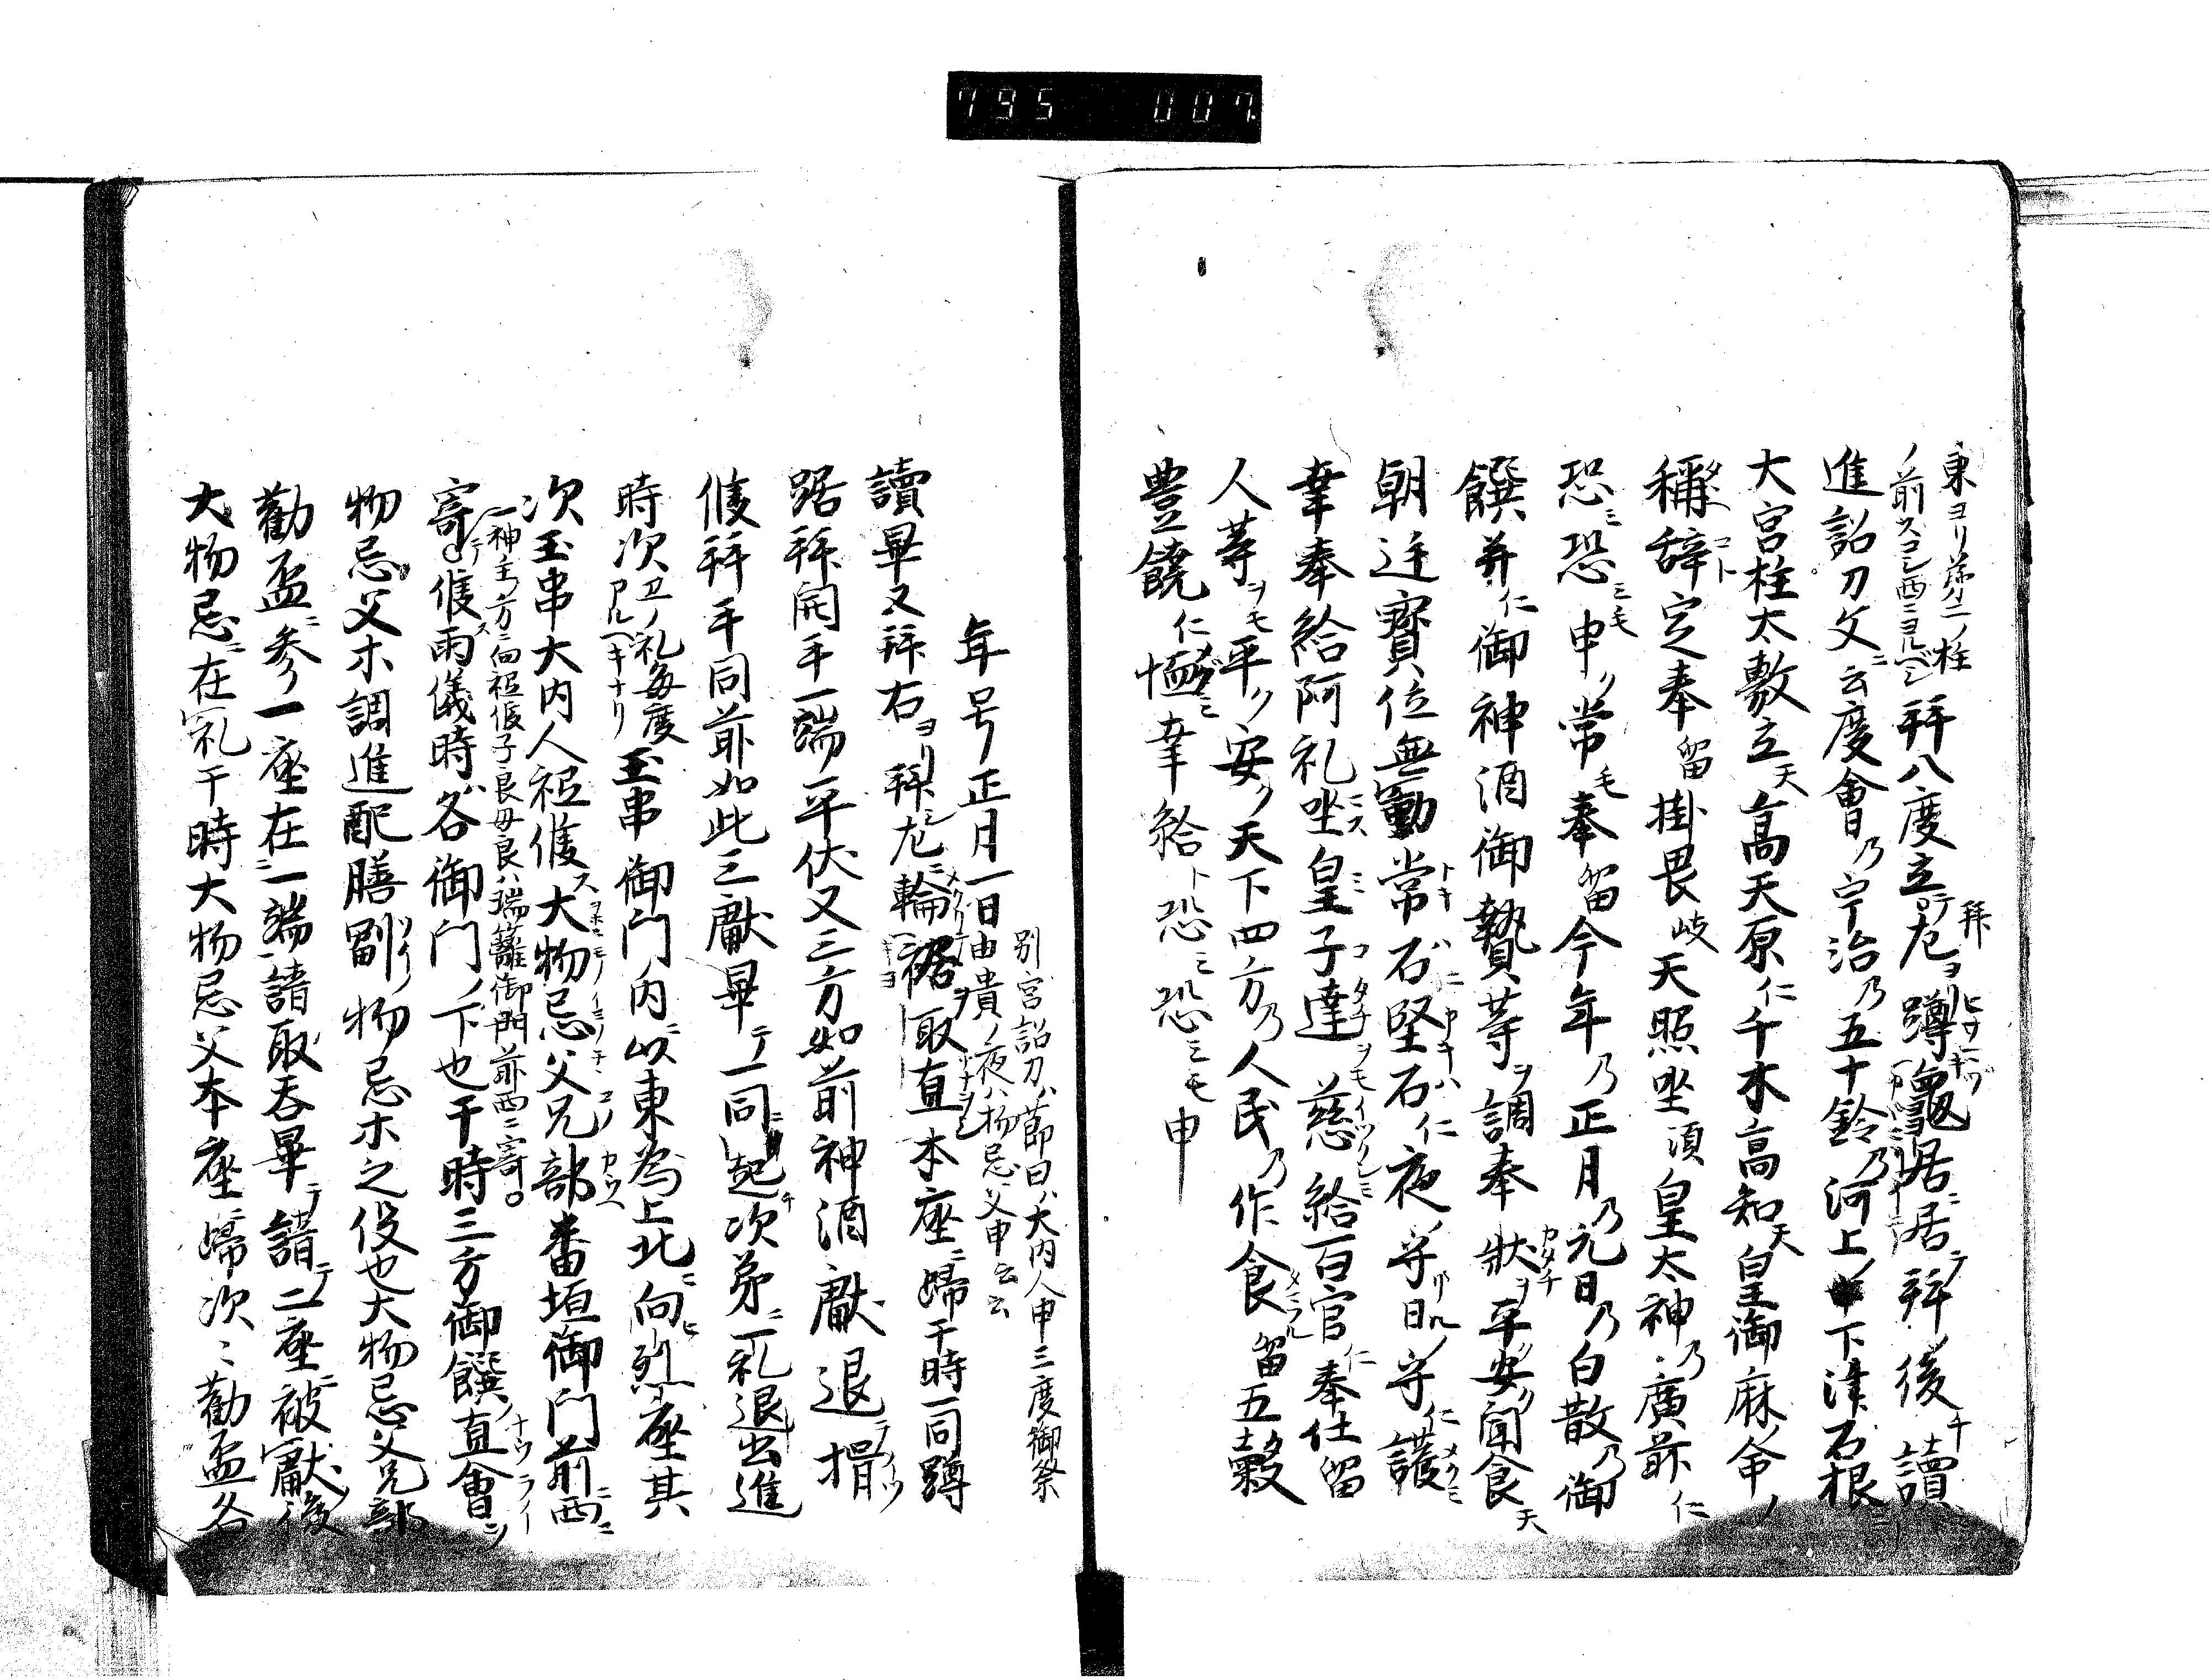 795 007
東ヨリ第二ノ柱
ノ前スコシ西ニヨルヘシ
拜八度立テ尨ヨリ蹲龜居居テ拜ノ後チ讀
進詔刀文ニ云度會乃宇治乃五十鈴乃河上ノ下津石根
大宮柱太敷立天高天原仁千木高知天皇御麻命ノ
稱辞定奉留掛畏岐天照坐須皇太神乃廣前仁
恐ミ恐ミ毛申ク常毛奉留今年乃正月乃元日乃白散乃御
饌并仁御神酒御贄等ヲ調奉狀ヲ平ク安ク聞食天
朝廷寳位無動常石堅石仁夜守日守仁護
幸奉給阿礼坐皇子達ヲモ慈給百官仁奉仕留
人等ヲモ平ク安ク天下四方乃人民乃作食留五穀
豊饒仁恤幸給ト恐ミ恐ミモ申
年号正月一日
別宮詔刀ハ節日ハ大内人申三度御祭
由貴ノ夜ハ物忌父申云云
讀畢又拜右ヨリ拜シ尨ニ輪裾ヲ取直本座ニ帰于時一同蹲
踞拜開手一端平伏又三方如前神酒獻退揖
候拜手同前如此三獻畢テ一同ニ起チ次第ニ一礼退出進
時次
ノ礼毎度
アルヘキナリ
玉串御門内ニ以東為上北ニ向ヒ烈座其
次玉串大内人祗候ス大物忌父兄部番垣御門前西ニ
一神主ノ方ニ向祗候子良母良ハ瑞籬御門前西ニ寄
寄テ候ス雨儀時ハ各御門ノ下也于時三方御饌ノ直會ニ
物忌父木調進配膳ノ物忌木之役也大物忌父兄部
勸盃ニ参ノ一座在ニ一端請取呑畢テ請テ二座ニ被獻後
大物忌ニ在一礼于時大物忌父本座ニ帰次ニ勸盃各